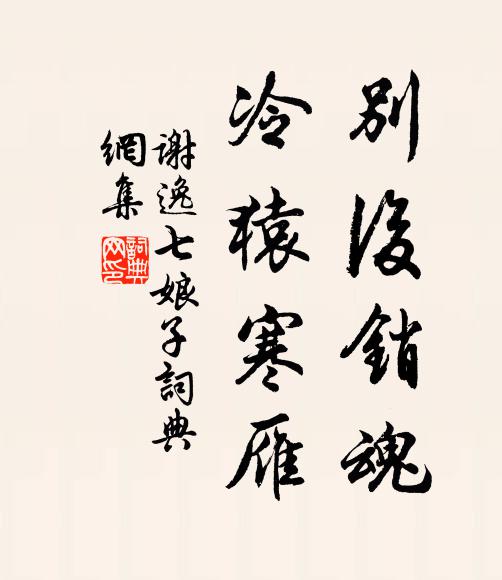 別後銷魂
冷猿寒雁
謝逸七娘子詞典
網集
詞典網印